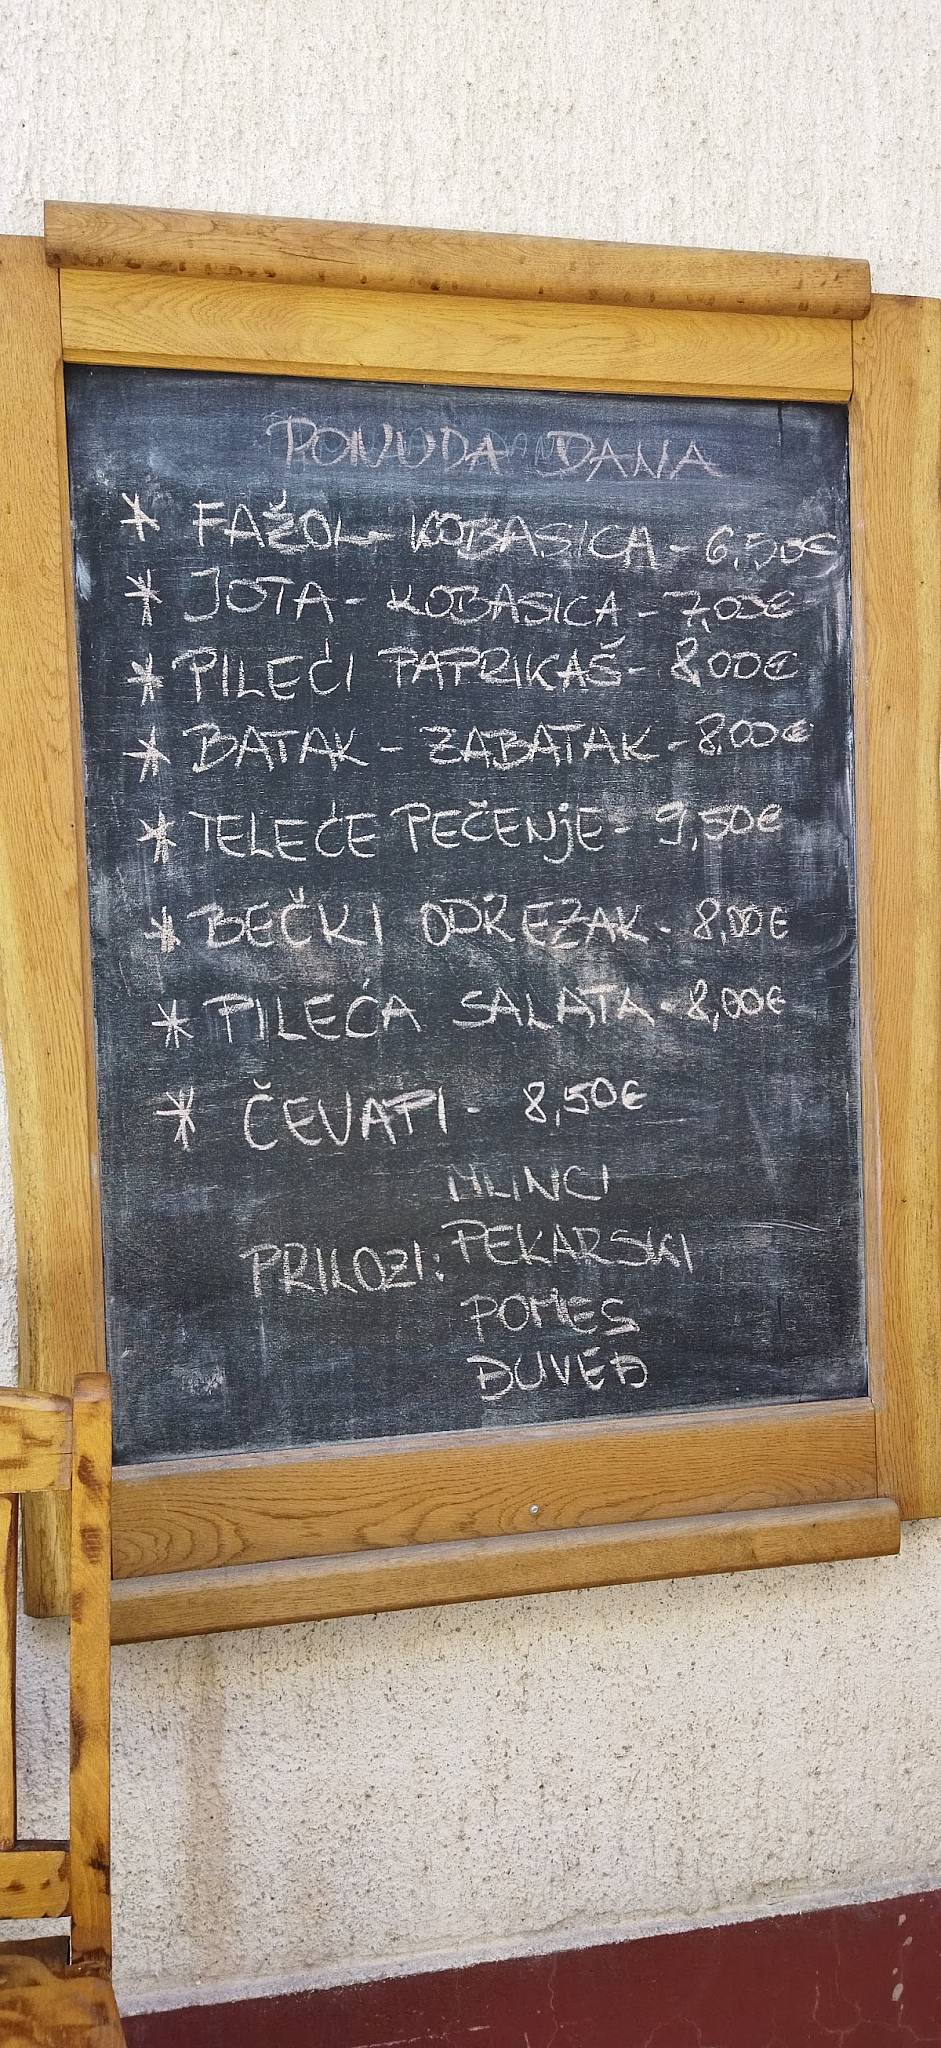 PONUDA DANA
* FAŽOL - KOBASICA - 6,50€
* JOTA - KOBASICA - 7,00€
* PILEĆI PAPRIKAŠ - 8,00€
* BATAK - ZABATAK - 8,00€
* TELEĆE PEČENjE - 9,50€
* BEČKI ODREZAK - 8,00€
* PILEĆA SALATA - 8,00€
* ČEVAPI - 8,50€
MLINCI
PRILOZI: PEKARSKI
POMES
ĐUVEĐ